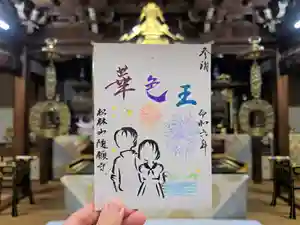 奉拝
華色王
令和六年
松林山随願寺